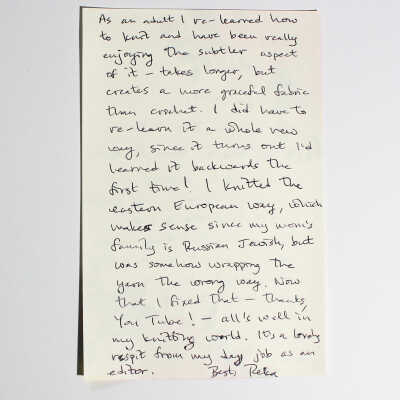 As an adult I re-learned how
to knit and have been really
enjoying the subtler aspect
of it - takes longer, but
creates a more graceful fabric
than crochet. I did have to
re-learn it a whole new
way, since it turns out I'd
learned it backwards the
first time! I knitted the
eastern European way, which
makes sense since my mom's
family is Russian Jewish, but
was somehow wrapping the
yarn the wrong way. Now
that I fixed that - thanks,
You Tube! - all's well in
my knitting world. It's a lovely
respit from my day job as an
editor. Best, Reka